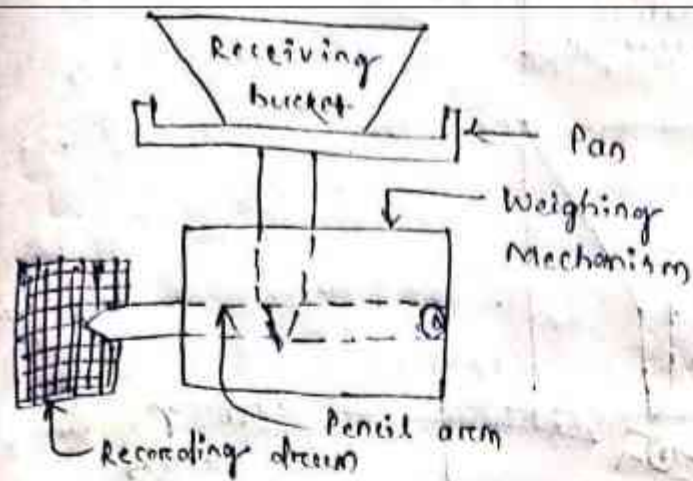 Receiving
bucket
Pan
Weighing
Mechanism
Pencil arm
Recording drum